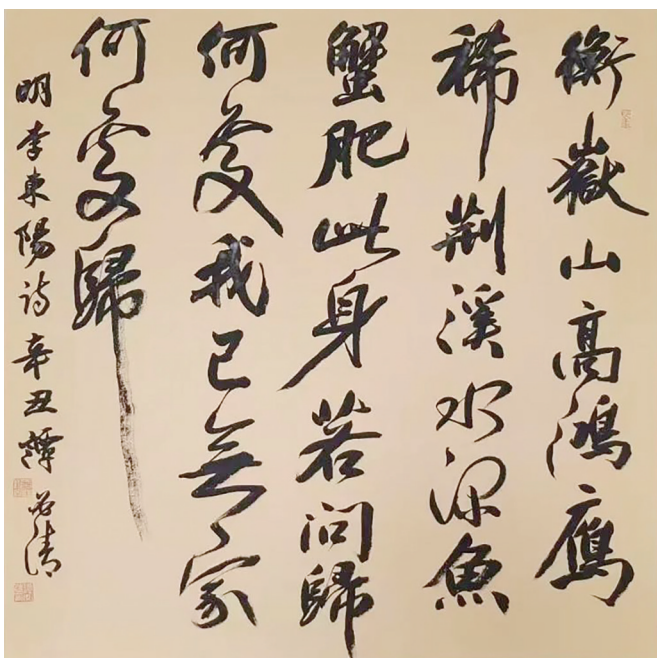 衡嶽山高鴻鴈
稀荆溪水深魚
蟹肥此身若问歸
何處我已無家
何處歸
明李東陽诗辛丑譚石清